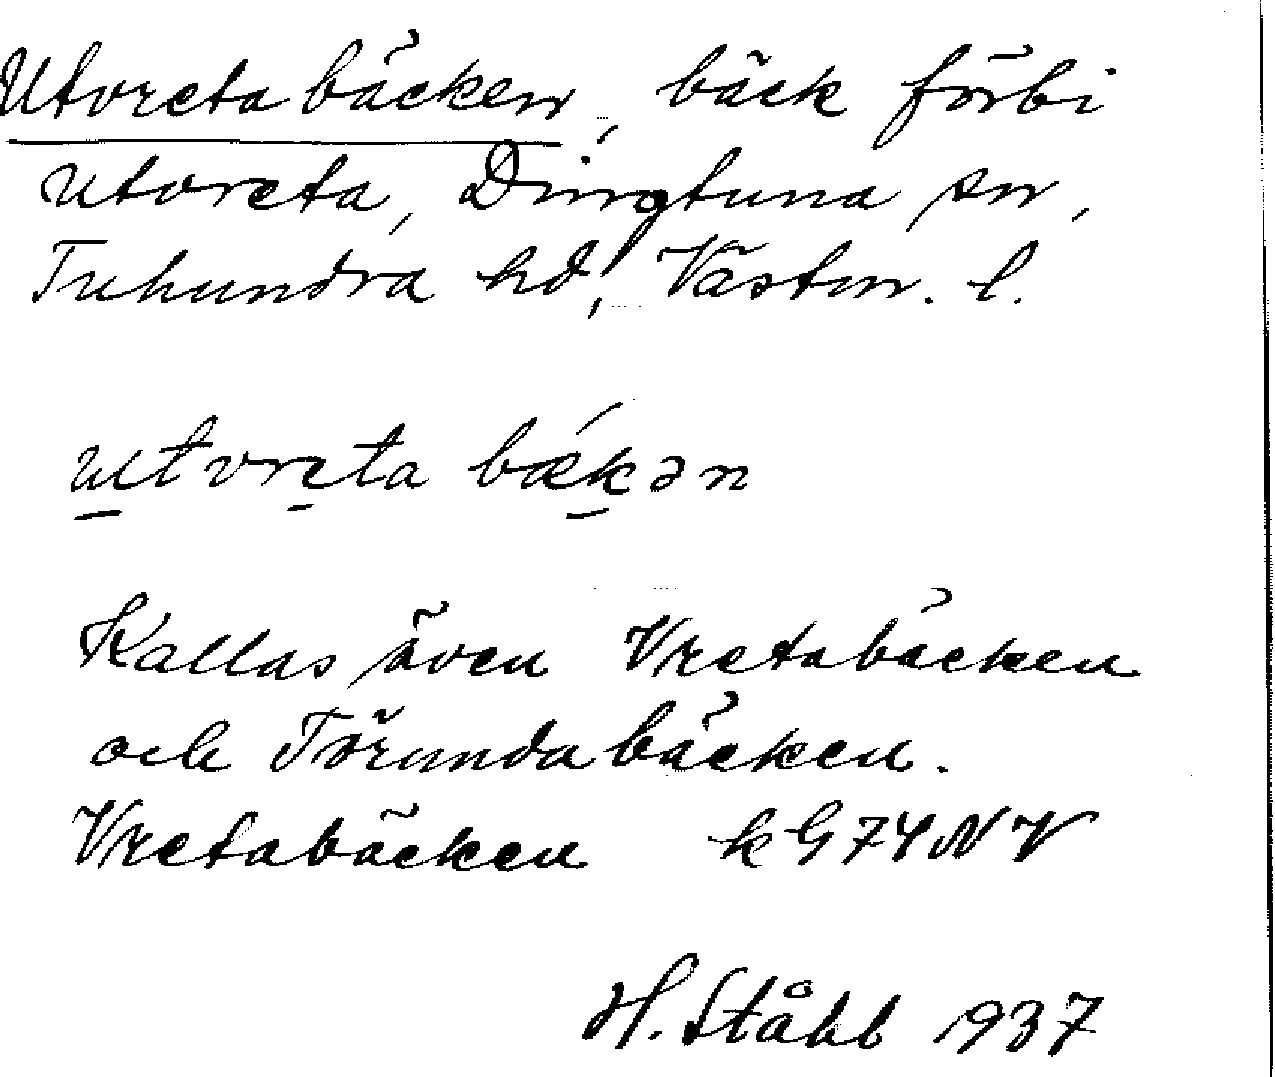 Utvretabäcken, bäck förbi
Utvreta, Dingtuna sn,
Tuhundra hd, Västm. l.
utvreta bækən
Kallas även Vretabäcken
och Törundabäcken.
Vretabäcken kG74NV
H. Ståhl 1937